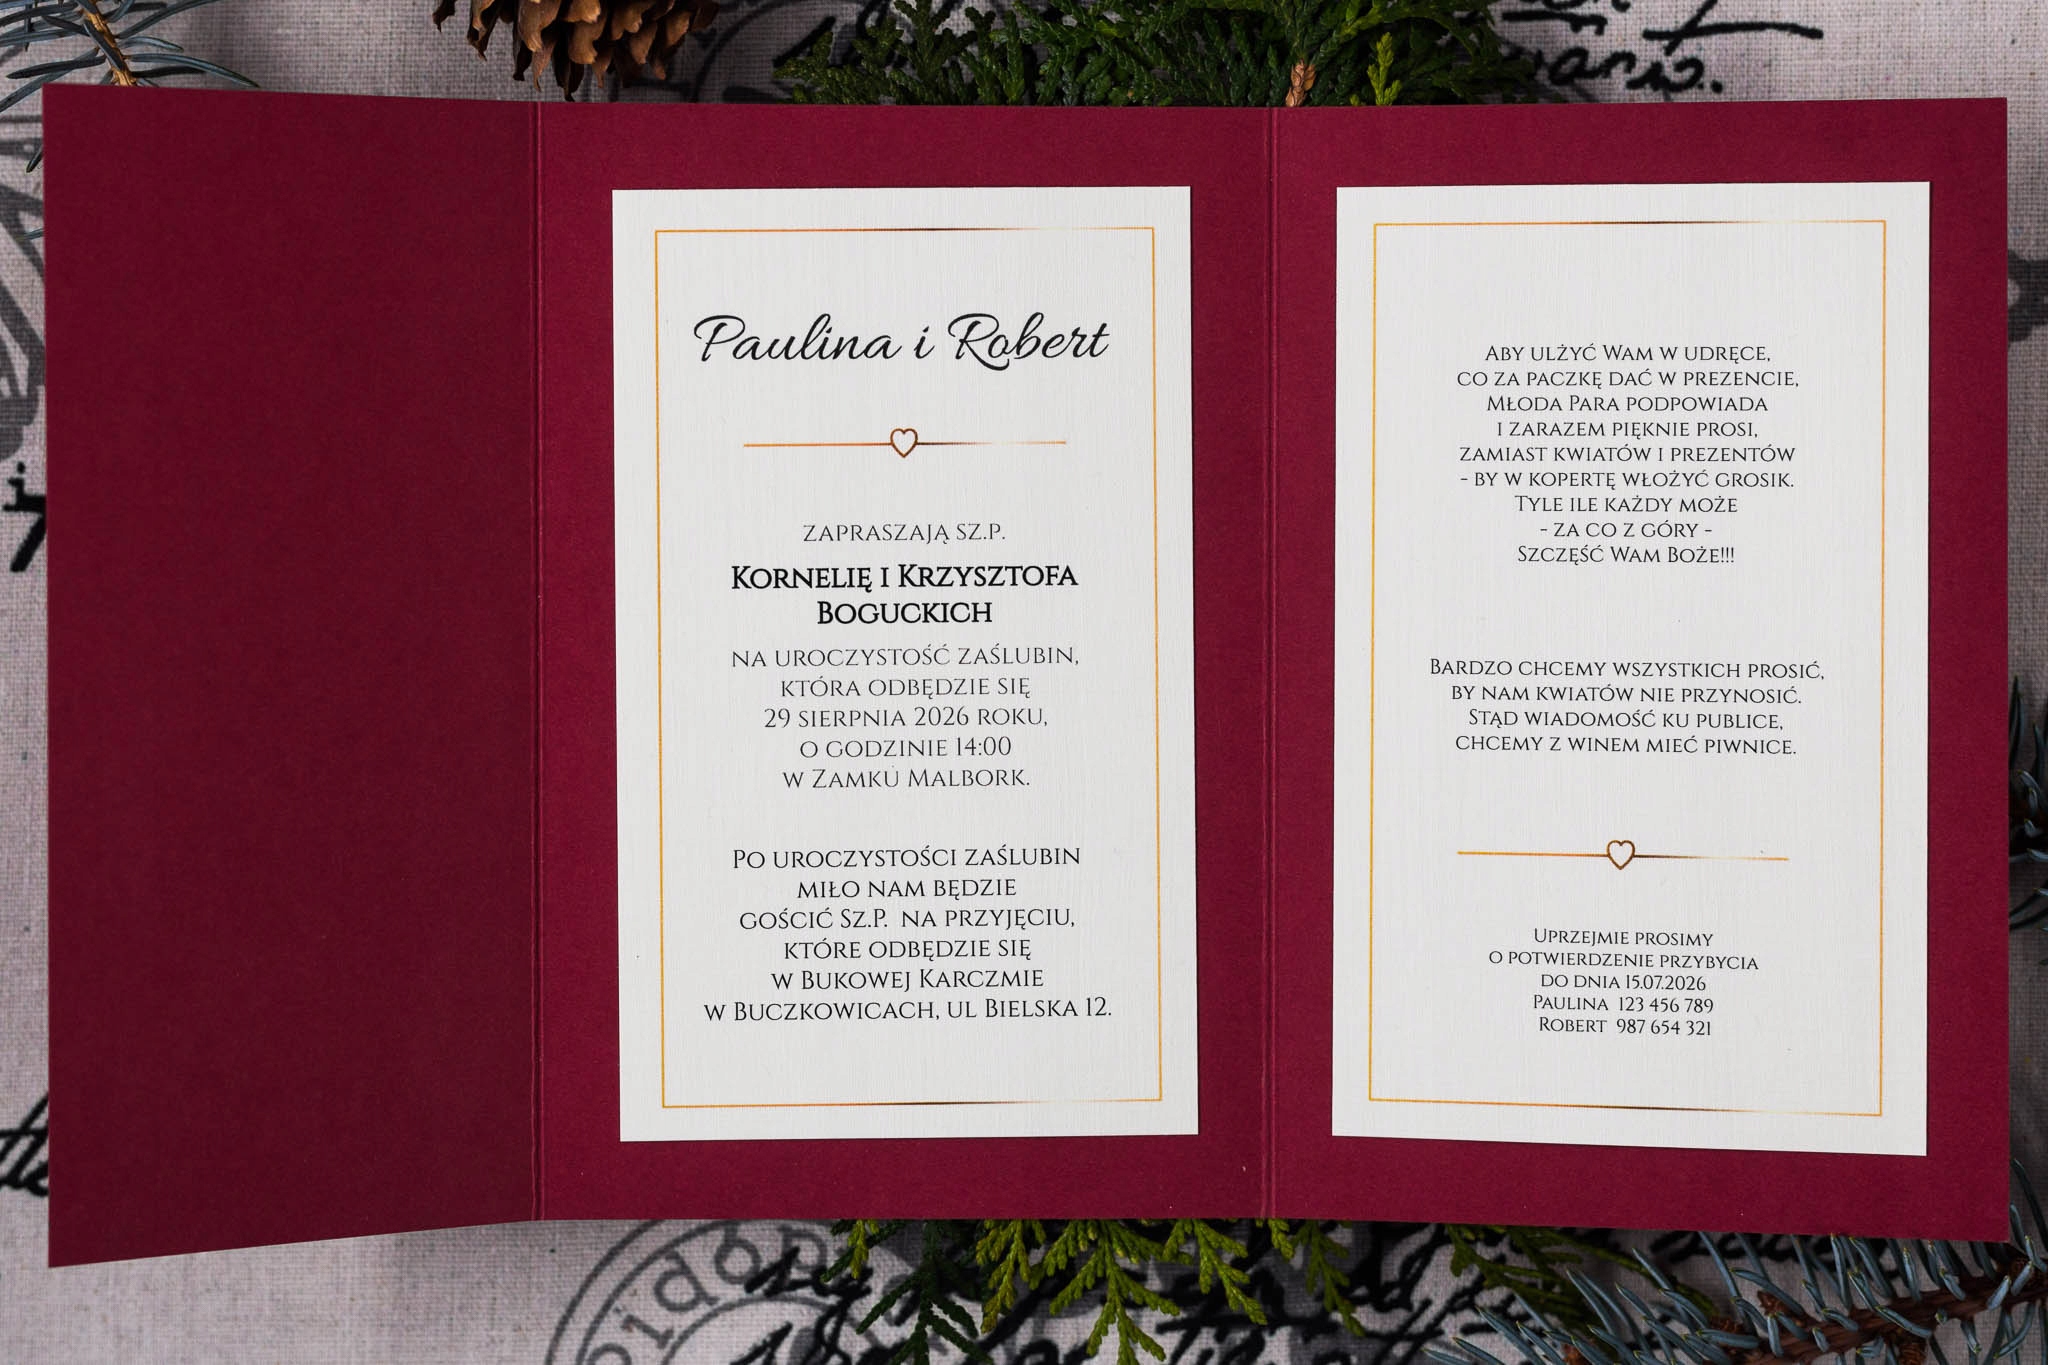 Paulina i Robert
ZAPRASZAJĄ SZ.P.
KORNELIĘ I KRZYSZTOFA
BOGUCKICH
NA UROCZYSTOŚĆ ZAŚLUBIN,
KTÓRA ODBĘDZIE SIĘ
29 SIERPNIA 2026 ROKU,
O GODZINIE 14:00
W ZAMKU MALBORK.
PO UROCZYSTOŚCI ZAŚLUBIN
MIŁO NAM BĘDZIE
GOŚCIĆ SZ.P. NA PRZYJĘCIU,
KTÓRE ODBĘDZIE SIĘ
W BUKOWEJ KARCZMIE
W BUCZKOWICACH, UL BIELSKA 12.
ABY ULŻYĆ WAM W UDRĘCE,
CO ZA PACZKĘ DAĆ W PREZENCIE,
MŁODA PARA PODPOWIADA
I ZARAZEM PIĘKNIE PROSI,
ZAMIAST KWIATÓW I PREZENTÓW
- BY W KOPERTĘ WŁOŻYĆ GROSIK.
TYLE ILE KAŻDY MOŻE
- ZA CO Z GÓRY -
SZCZĘŚĆ WAM BOŻE!!!
BARDZO CHCEMY WSZYSTKICH PROSIĆ,
BY NAM KWIATÓW NIE PRZYNOSIĆ.
STĄD WIADOMOŚĆ KU PUBLICE,
CHCEMY Z WINEM MIEĆ PIWNICE.
UPRZEJMIE PROSIMY
O POTWIERDZENIE PRZYBYCIA
DO DNIA 15.07.2026
PAULINA 123 456 789
ROBERT 987 654 321